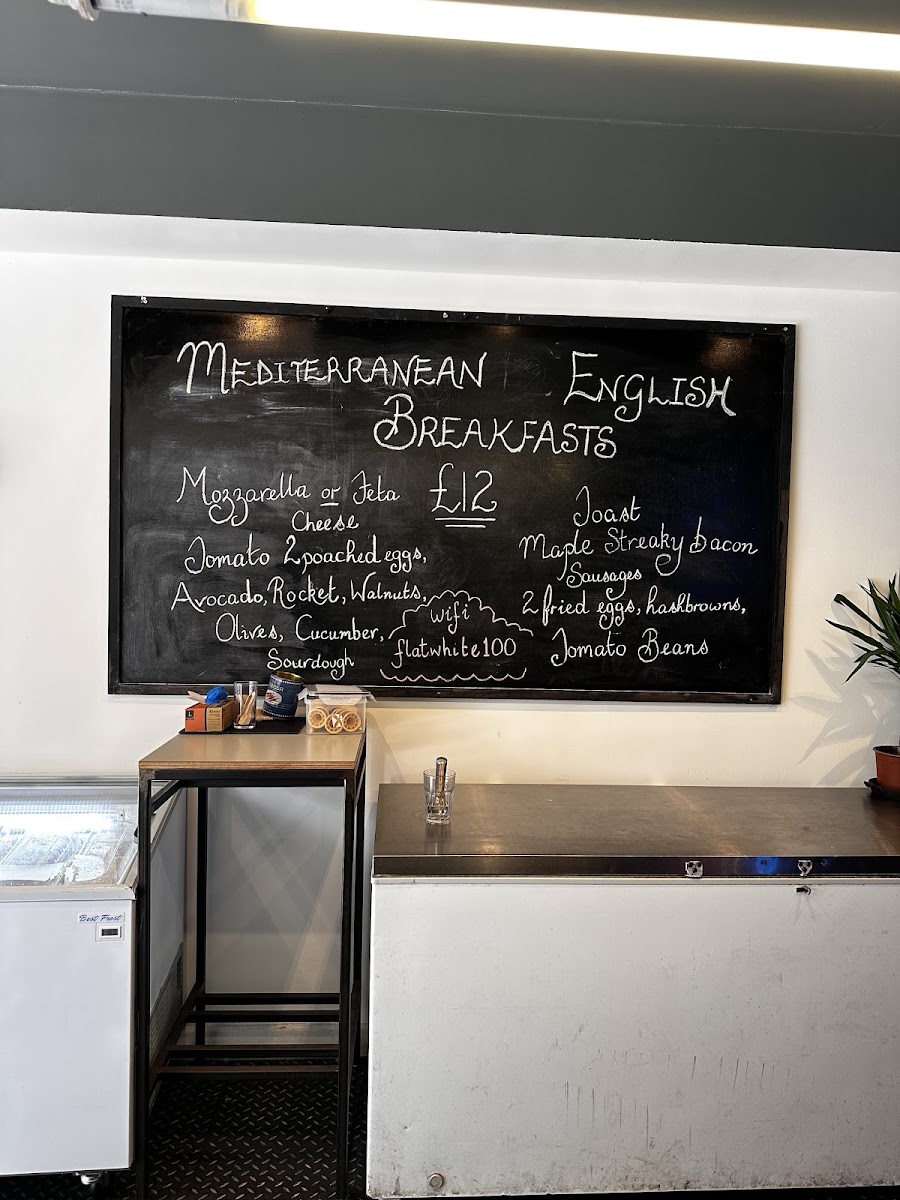 MEDITERRANEAN ENGLISH
BREAKFASTS
£12
Mozzarella or Feta
Cheese
Tomato 2 poached eggs,
Avocado, Rocket, Walnuts,
Olives, Cucumber,
Sourdough
wifi
flatwhite100
Toast
Maple Streaky bacon
Sausages
2 fried eggs, hashbrowns,
Tomato Beans
Best Frost